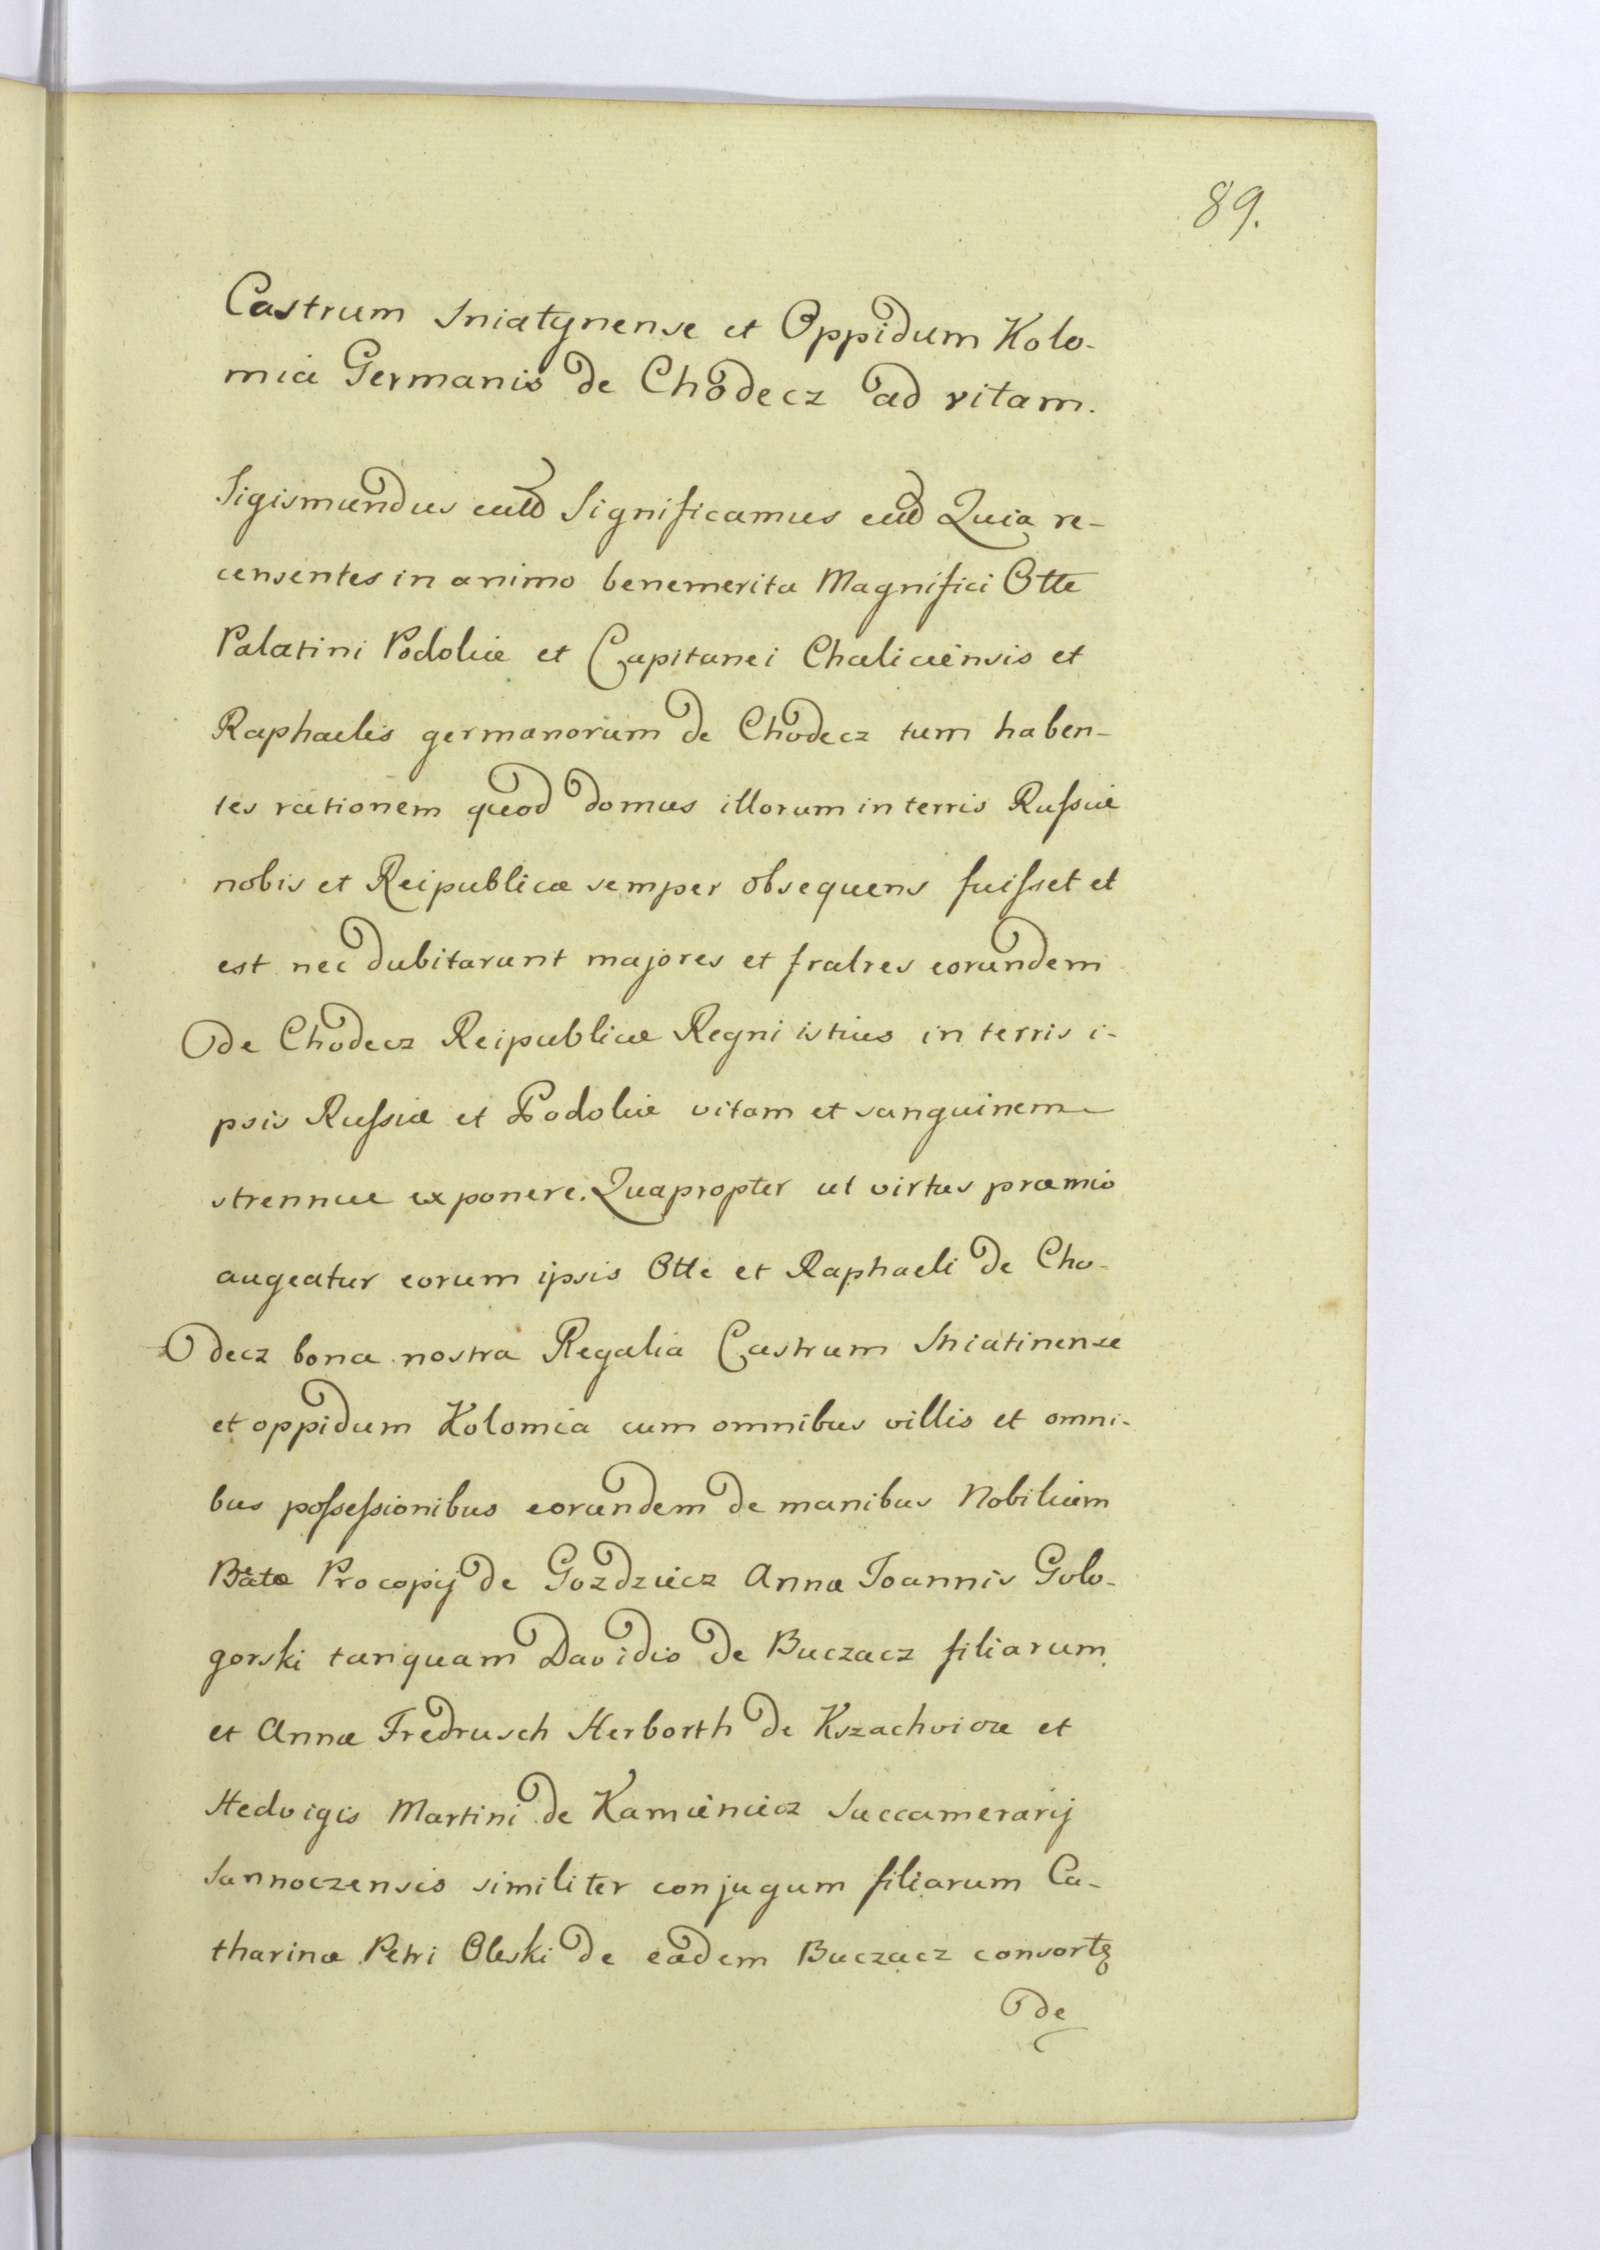 89.
Castrum Sniatynense et Oppidum Kolo-
mia Germanis de Chodecz ad vitam.
Sigismundus Significamus Quia re-
censentes in animo benemerita Magnifici Otte
Palatini Podoliæ et Capitanei Chaliciensis et
Raphaelis germanorum de Chodecz tum haben-
tes rationem quod domus illorum in terris Russiæ
nobis et Reipublicæ semper obsequens fuisset et
est nec dubitarunt majores et fratres eorundem
de Chodecz Reipublicæ Regni istius in terris i-
psis Russiæ et Podoliæ vitam et sanguinem
strennue exponere. Quapropter ut virtus præmio
augeatur eorum ipsis Otte et Raphaeli de Cho-
decz bona nostra Regalia Castrum Sniatinense
et oppidum Kolomia cum omnibus villis et omni-
bus possessionibus eorundem de manibus Nobilium
Procopij de Gozdziecz Annæ Joannis Golo-
gorski tanquam Davidis de Buczacz filiarum
et Annæ Fredrusch Herborth de et
Hedvigis Martini de Kamieniecz Succamerarij
Sannoczensis similiter conjugum filiarum Ca-
tharinæ Petri Oleski de eadem Buczacz
de